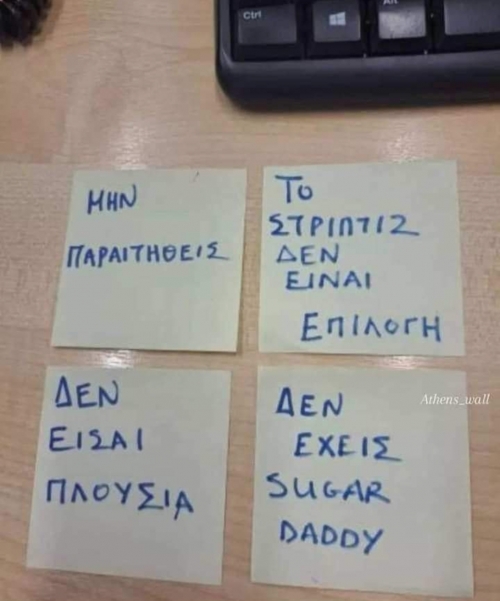 Ctrl
Alt
ΜΗΝ
ΠΑΡΑΙΤΗΘΕΙΣ
ΤΟ
ΣΤΡΙΠΤΙΖ
ΔΕΝ
ΕΙΝΑΙ
ΕΠΙΛΟΓΗ
ΔΕΝ
ΕΙΣΑΙ
ΠΛΟΥΣΙΑ
ΔΕΝ
ΕΧΕΙΣ
SUGAR
DADDY
Athens_wall